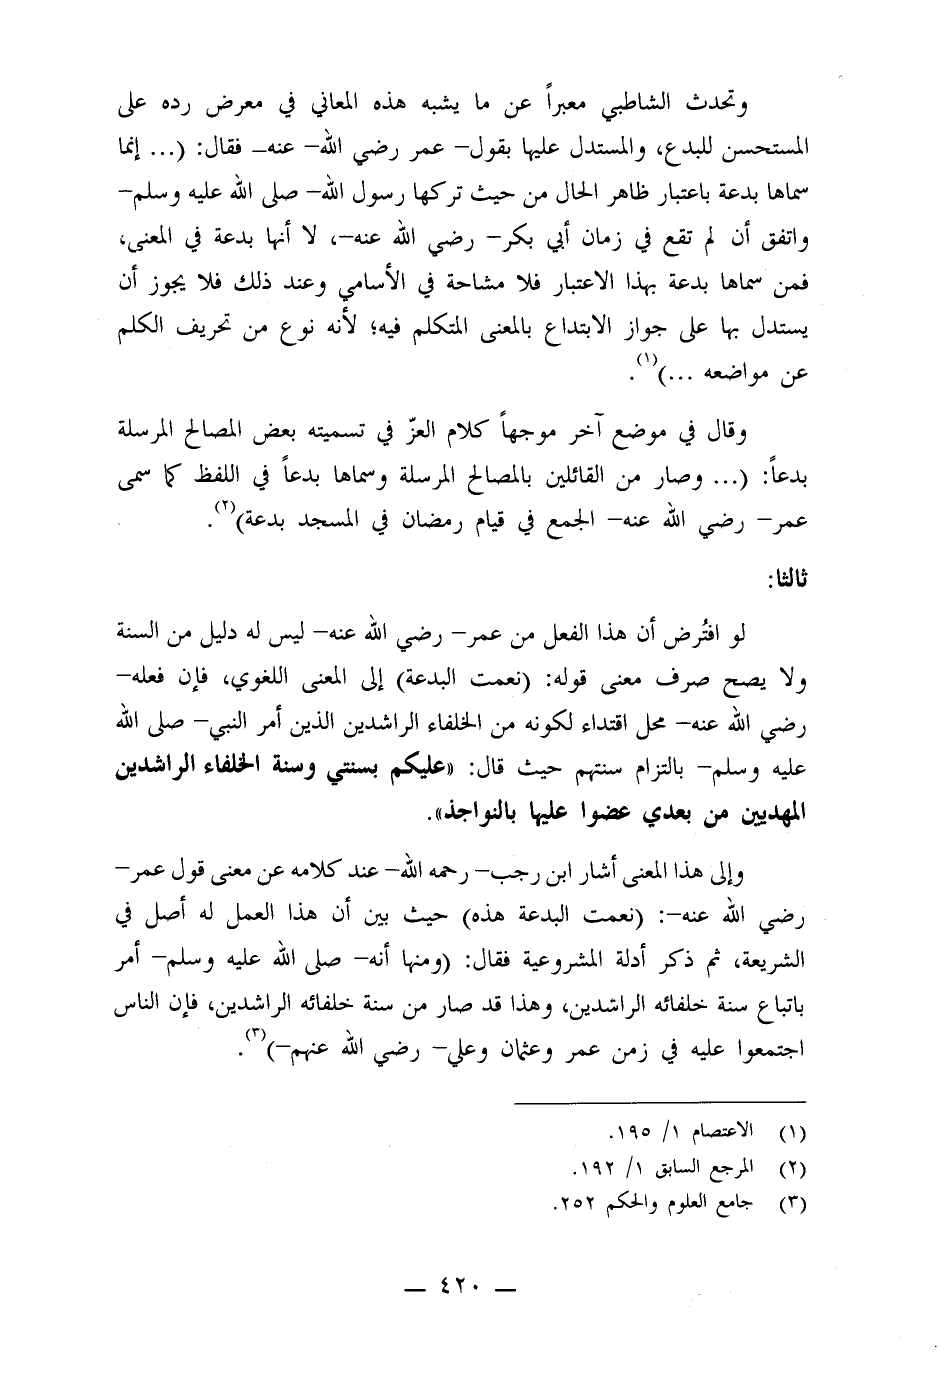 وتحدث الشاطبي معبراً عن ما يشبه هذه المعاني في معرض رده على
المستحسن للبدع، والمستدل عليها بقول– عمر رضي الله– عنه– فقال: (... إنما
سماها بدعة باعتبار ظاهر الحال من حيث تركها رسول الله– صلى الله عليه وسلم–
واتفق أن لم تقع في زمان أبي بكر– رضي الله عنه–، لا أنها بدعة في المعنى،
فمن سماها بدعة بهذا الاعتبار فلا مشاحة في الأسامي وعند ذلك فلا يجوز أن
يستدل بها على جواز الابتداع بالمعنى المتكلم فيه؛ لأنه نوع من تحريف الكلم
عن مواضعه ...)(١).
وقال في موضع آخر موجهاً كلام العزّ في تسميته بعض المصالح المرسلة
بدعاً: (... وصار من القائلين بالمصالح المرسلة وسماها بدعاً في اللفظ كما سمى
عمر– رضي الله عنه– الجمع في قيام رمضان في المسجد بدعة)(٢).
ثالثا:
لو افتُرض أن هذا الفعل من عمر– رضي الله عنه– ليس له دليل من السنة
ولا يصح صرف معنى قوله: (نعمت البدعة) إلى المعنى اللغوي، فإن فعله–
رضي الله عنه– محل اقتداء لكونه من الخلفاء الراشدين الذين أمر النبي– صلى الله
عليه وسلم– بالتزام سنتهم حيث قال: «عليكم بسنتي وسنة الخلفاء الراشدين
المهديين من بعدي عضوا عليها بالنواجذ».
وإلى هذا المعنى أشار ابن رجب– رحمه الله– عند كلامه عن معنى قول عمر–
رضي الله عنه–: (نعمت البدعة هذه) حيث بين أن هذا العمل له أصل في
الشريعة، ثم ذكر أدلة المشروعية فقال: (ومنها أنه– صلى الله عليه وسلم– أمر
باتباع سنة خلفائه الراشدين، وهذا قد صار من سنة خلفائه الراشدين، فإن الناس
اجتمعوا عليه في زمن عمر وعثمان وعلي– رضي الله عنهم–)(٣).
(١) الاعتصام ١/ ١٩٥.
(٢) المرجع السابق ١/ ١٩٢.
(٣) جامع العلوم والحكم ٢٥٢.
— ٤٢٠ —